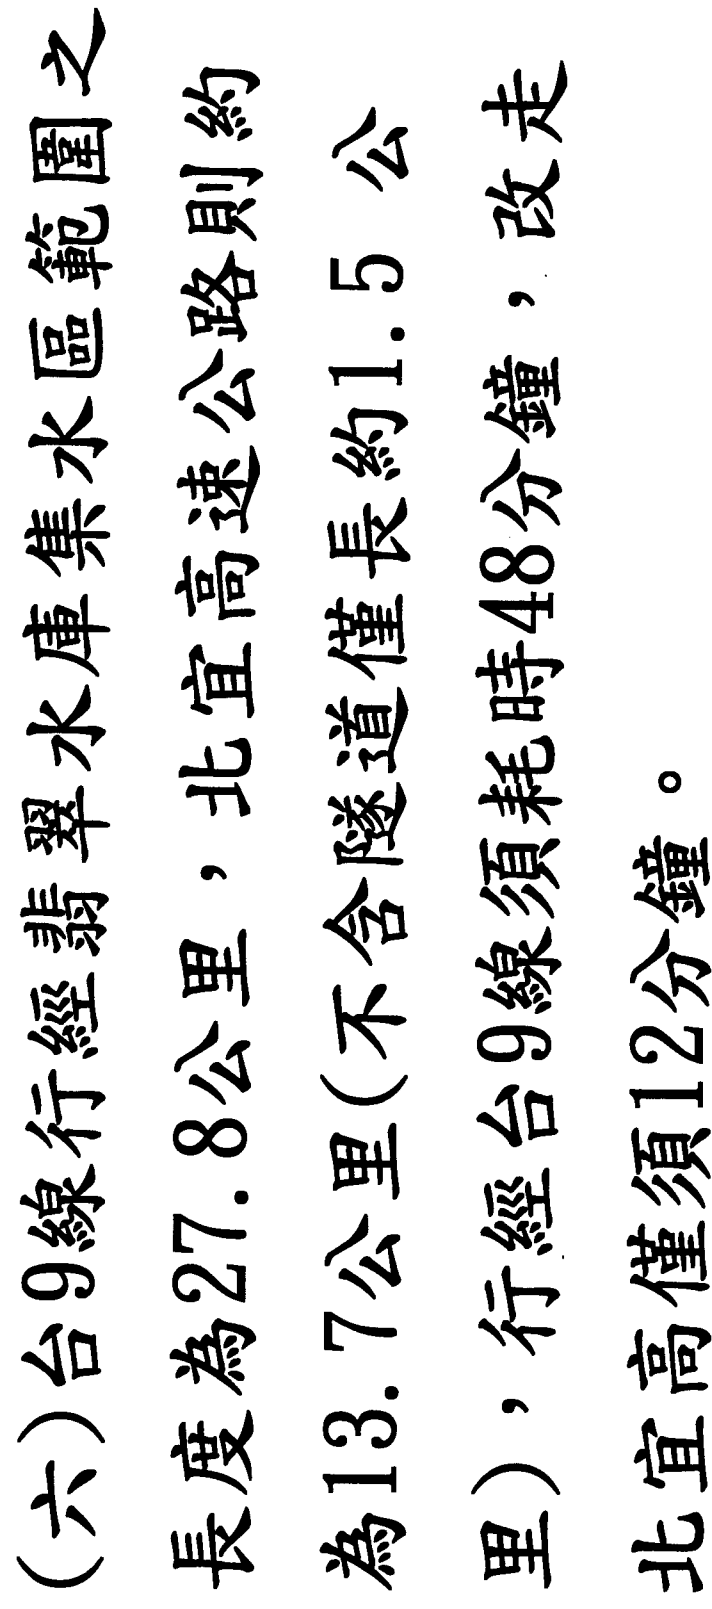 (六)台9線行經翡翠水庫集水區範圍之
長度為27.8公里，北宜高速公路則約
為13.7公里(不含隧道僅長約1.5 公
里)，行經台9線須耗時48分鐘，改走
北宜高僅須12分鐘。